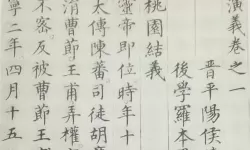 演義卷之一
晋平陽侯
後學羅本
桃園結義
靈帝即位時年十
太傅陳蕃司徒胡廣
涓曹節王甫弄權
不密反被曹節王
寧二年四月十五